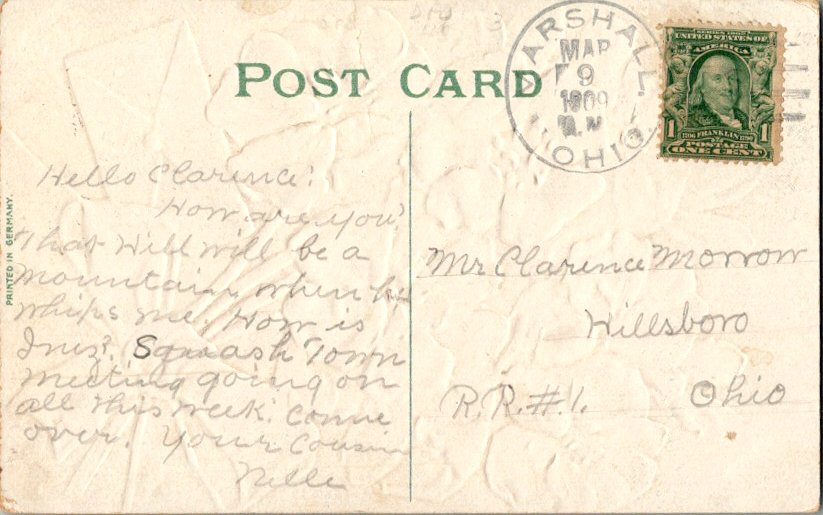 POST CARD
MARSHALL,
MAR
9
1909
A.M
OHIO
SERIES 1902
UNITED STATES OF
AMERICA
1 FRANKLIN 1
POSTAGE
ONE CENT
PRINTED IN GERMANY.
Hello Clarence!
How are you?
That Will will be a
mountain when he
whips me. How is
Inez? Squash Town
meeting going on
all this week. Come
over. Your Cousin
Nelle
Mr Clarence Morrow
Hillsboro
R.R.#1. Ohio